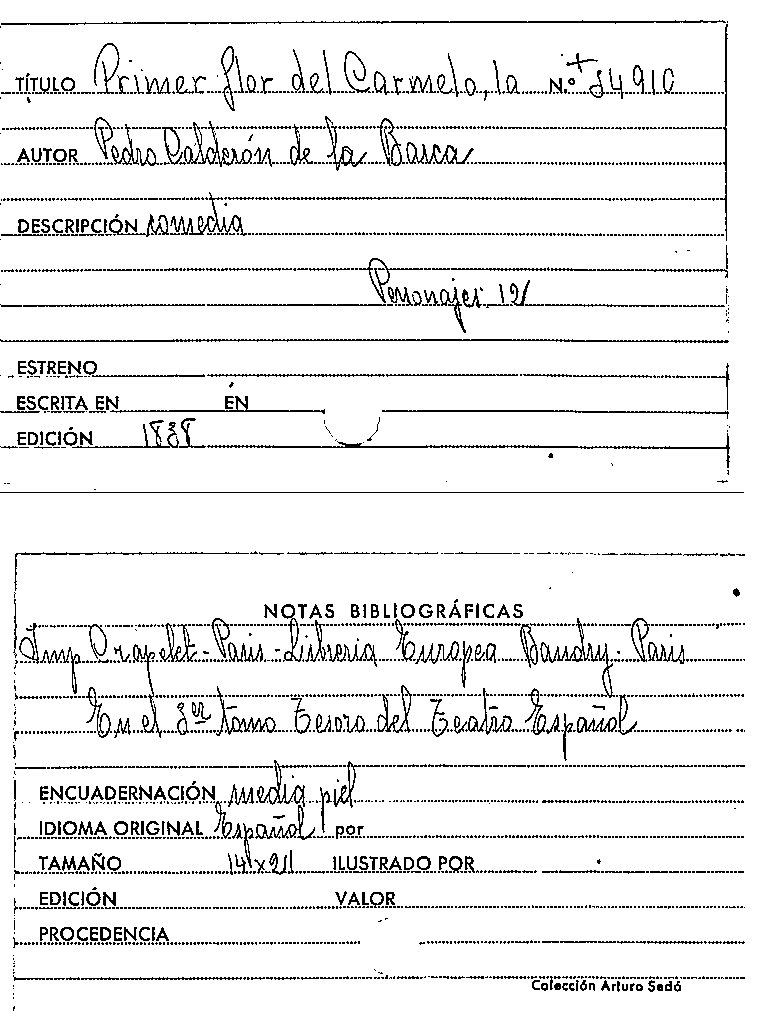 TÍTULO Primer flor del Carmelo, la N.º 54910
AUTOR Pedro Calderón de la Barca
DESCRIPCIÓN comedia
Personajes 12
ESTRENO
ESCRITA EN EN
EDICIÓN 1838
NOTAS BIBLIOGRÁFICAS
Imp Crapelet - Paris - Libreria Europea Baudry - Paris
En el 3er tomo Tesoro del Teatro Español
ENCUADERNACIÓN media piel
IDIOMA ORIGINAL Español por
TAMAÑO 14x21 ILUSTRADO POR
EDICIÓN VALOR
PROCEDENCIA
Colección Arturo Sedó